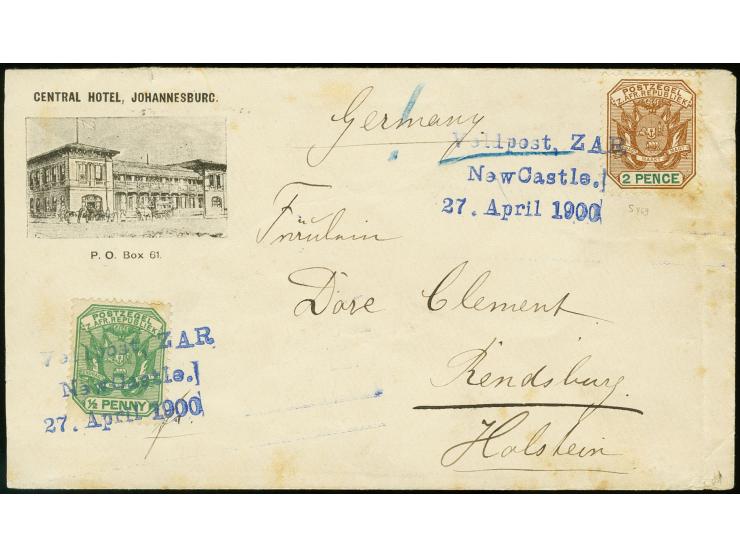 CENTRAL HOTEL, JOHANNESBURG.
P. O. Box 61.
Germany
POSTZEGEL
Z. AFR. REPUBLIEK
2 PENCE
Vellpost, ZAR
NewCastle.]
27. April 1900
Fräulein
Dore Clement
Rendsburg
Holstein
POSTZEGEL
Z. AFR. REPUBLIEK
½ PENNY
ZAR
NewCastle.]
27. April 1900